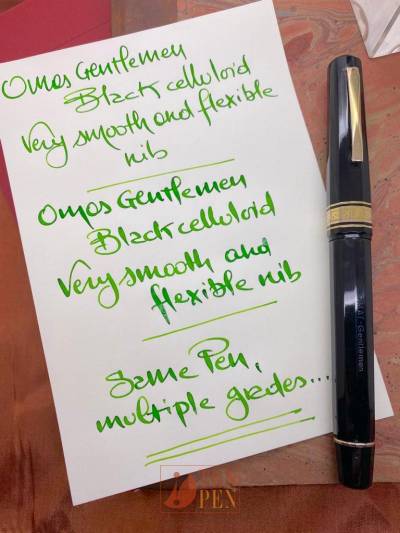 Omas Gentlemen
Black celluloid
Very smooth and flexible
nib
Omas Gentlemen
Black celluloid
Very smooth and
flexible nib
Same Pen,
multiple grades...
Gentlemen
PEN